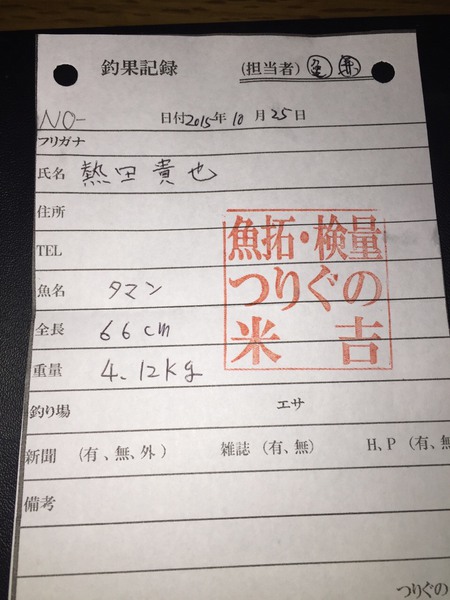 釣果記録 (担当者)
NO-
日付2015年10月25日
フリガナ
氏名 熱田貴也
住所
TEL
魚名 タマン
全長 66cm
重量 4.12kg
魚拓・検量
つりぐの
米吉
釣り場 エサ
新聞 (有、無、外) 雑誌 (有、無) H、P (有、無
備考
つりぐの